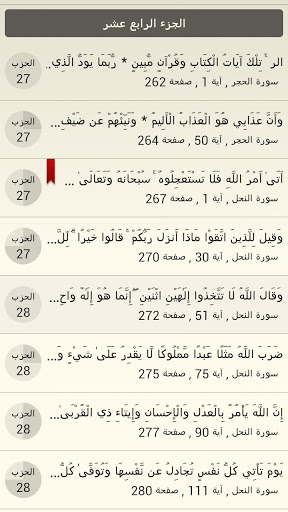 الجزء الرابع عشر
الر ۚ تِلْكَ آيَاتُ الْكِتَابِ وَقُرْآنٍ مُّبِينٍ * رُّبَمَا يَوَدُّ الَّذِي..
سورة الحجر , آية 1 , صفحة 262
الحزب
27
وَأَنَّ عَذَابِي هُوَ الْعَذَابُ الْأَلِيمُ * وَنَبِّئْهُمْ عَن ضَيْفِ..
سورة الحجر , آية 50 , صفحة 264
الحزب
27
أَتَىٰ أَمْرُ اللَّهِ فَلَا تَسْتَعْجِلُوهُ ۚ سُبْحَانَهُ وَتَعَالَىٰ..
سورة النحل , آية 1 , صفحة 267
الحزب
27
وَقِيلَ لِلَّذِينَ اتَّقَوْا مَاذَا أَنزَلَ رَبُّكُمْ ۚ قَالُوا خَيْرًا ۗ لِّلَّ..
سورة النحل , آية 30 , صفحة 270
الحزب
27
وَقَالَ اللَّهُ لَا تَتَّخِذُوا إِلَٰهَيْنِ اثْنَيْنِ ۖ إِنَّمَا هُوَ إِلَٰهٌ وَاحِ..
سورة النحل , آية 51 , صفحة 272
الحزب
28
ضَرَبَ اللَّهُ مَثَلًا عَبْدًا مَّمْلُوكًا لَّا يَقْدِرُ عَلَىٰ شَيْءٍ وَ..
سورة النحل , آية 75 , صفحة 275
الحزب
28
إِنَّ اللَّهَ يَأْمُرُ بِالْعَدْلِ وَالْإِحْسَانِ وَإِيتَاءِ ذِي الْقُرْبَىٰ..
سورة النحل , آية 90 , صفحة 277
الحزب
28
يَوْمَ تَأْتِي كُلُّ نَفْسٍ تُجَادِلُ عَن نَّفْسِهَا وَتُوَفَّىٰ كُلُّ..
سورة النحل , آية 111 , صفحة 280
الحزب
28